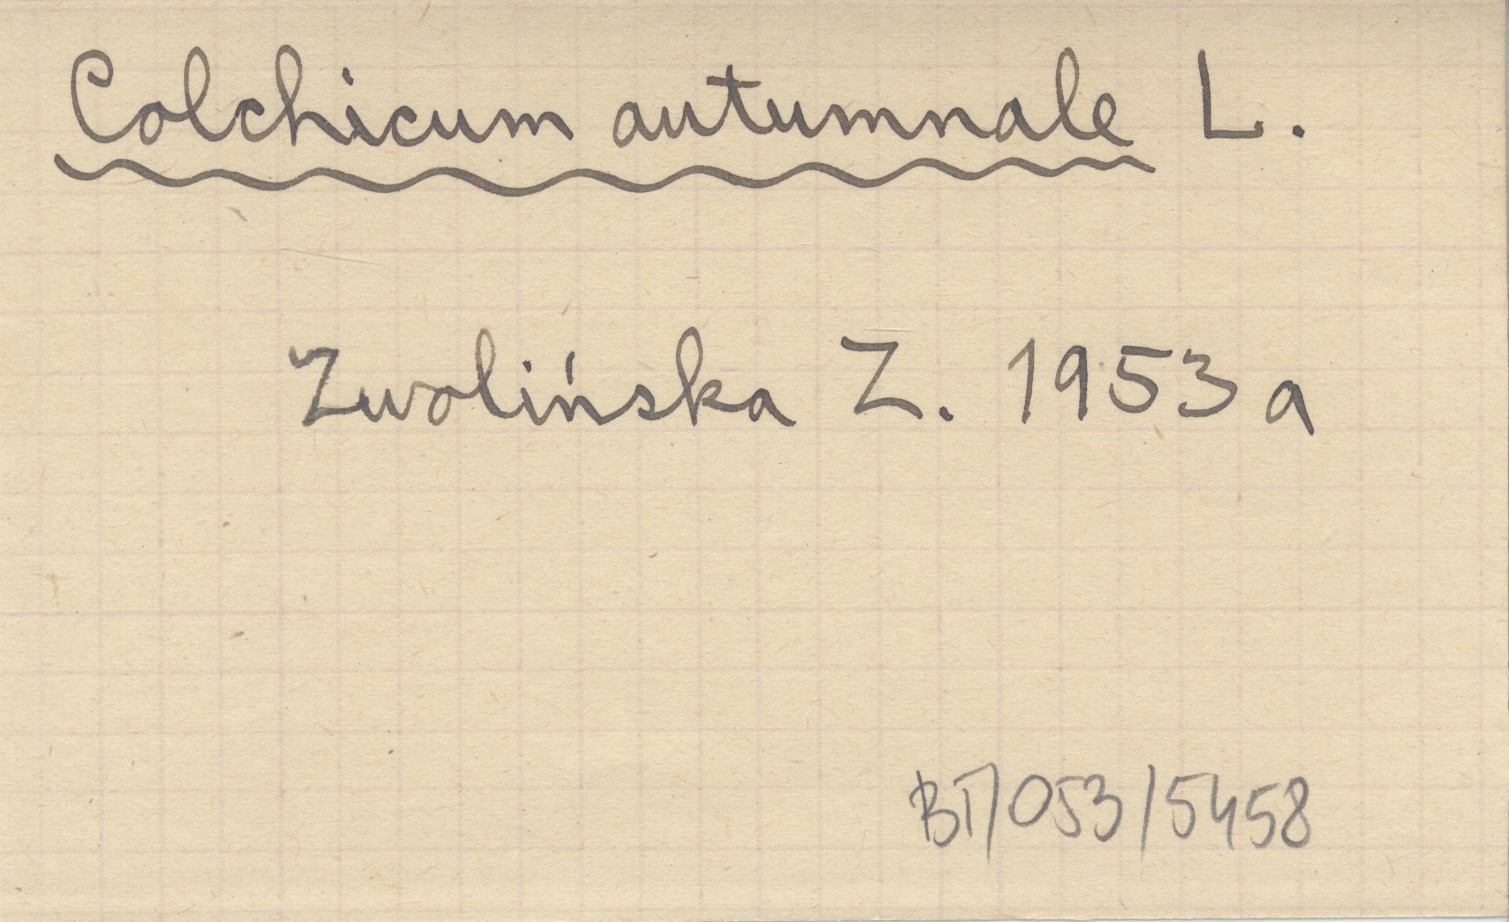 Colchicum autumnale L.
Zwolińska Z. 1953 a
BT/053/5458